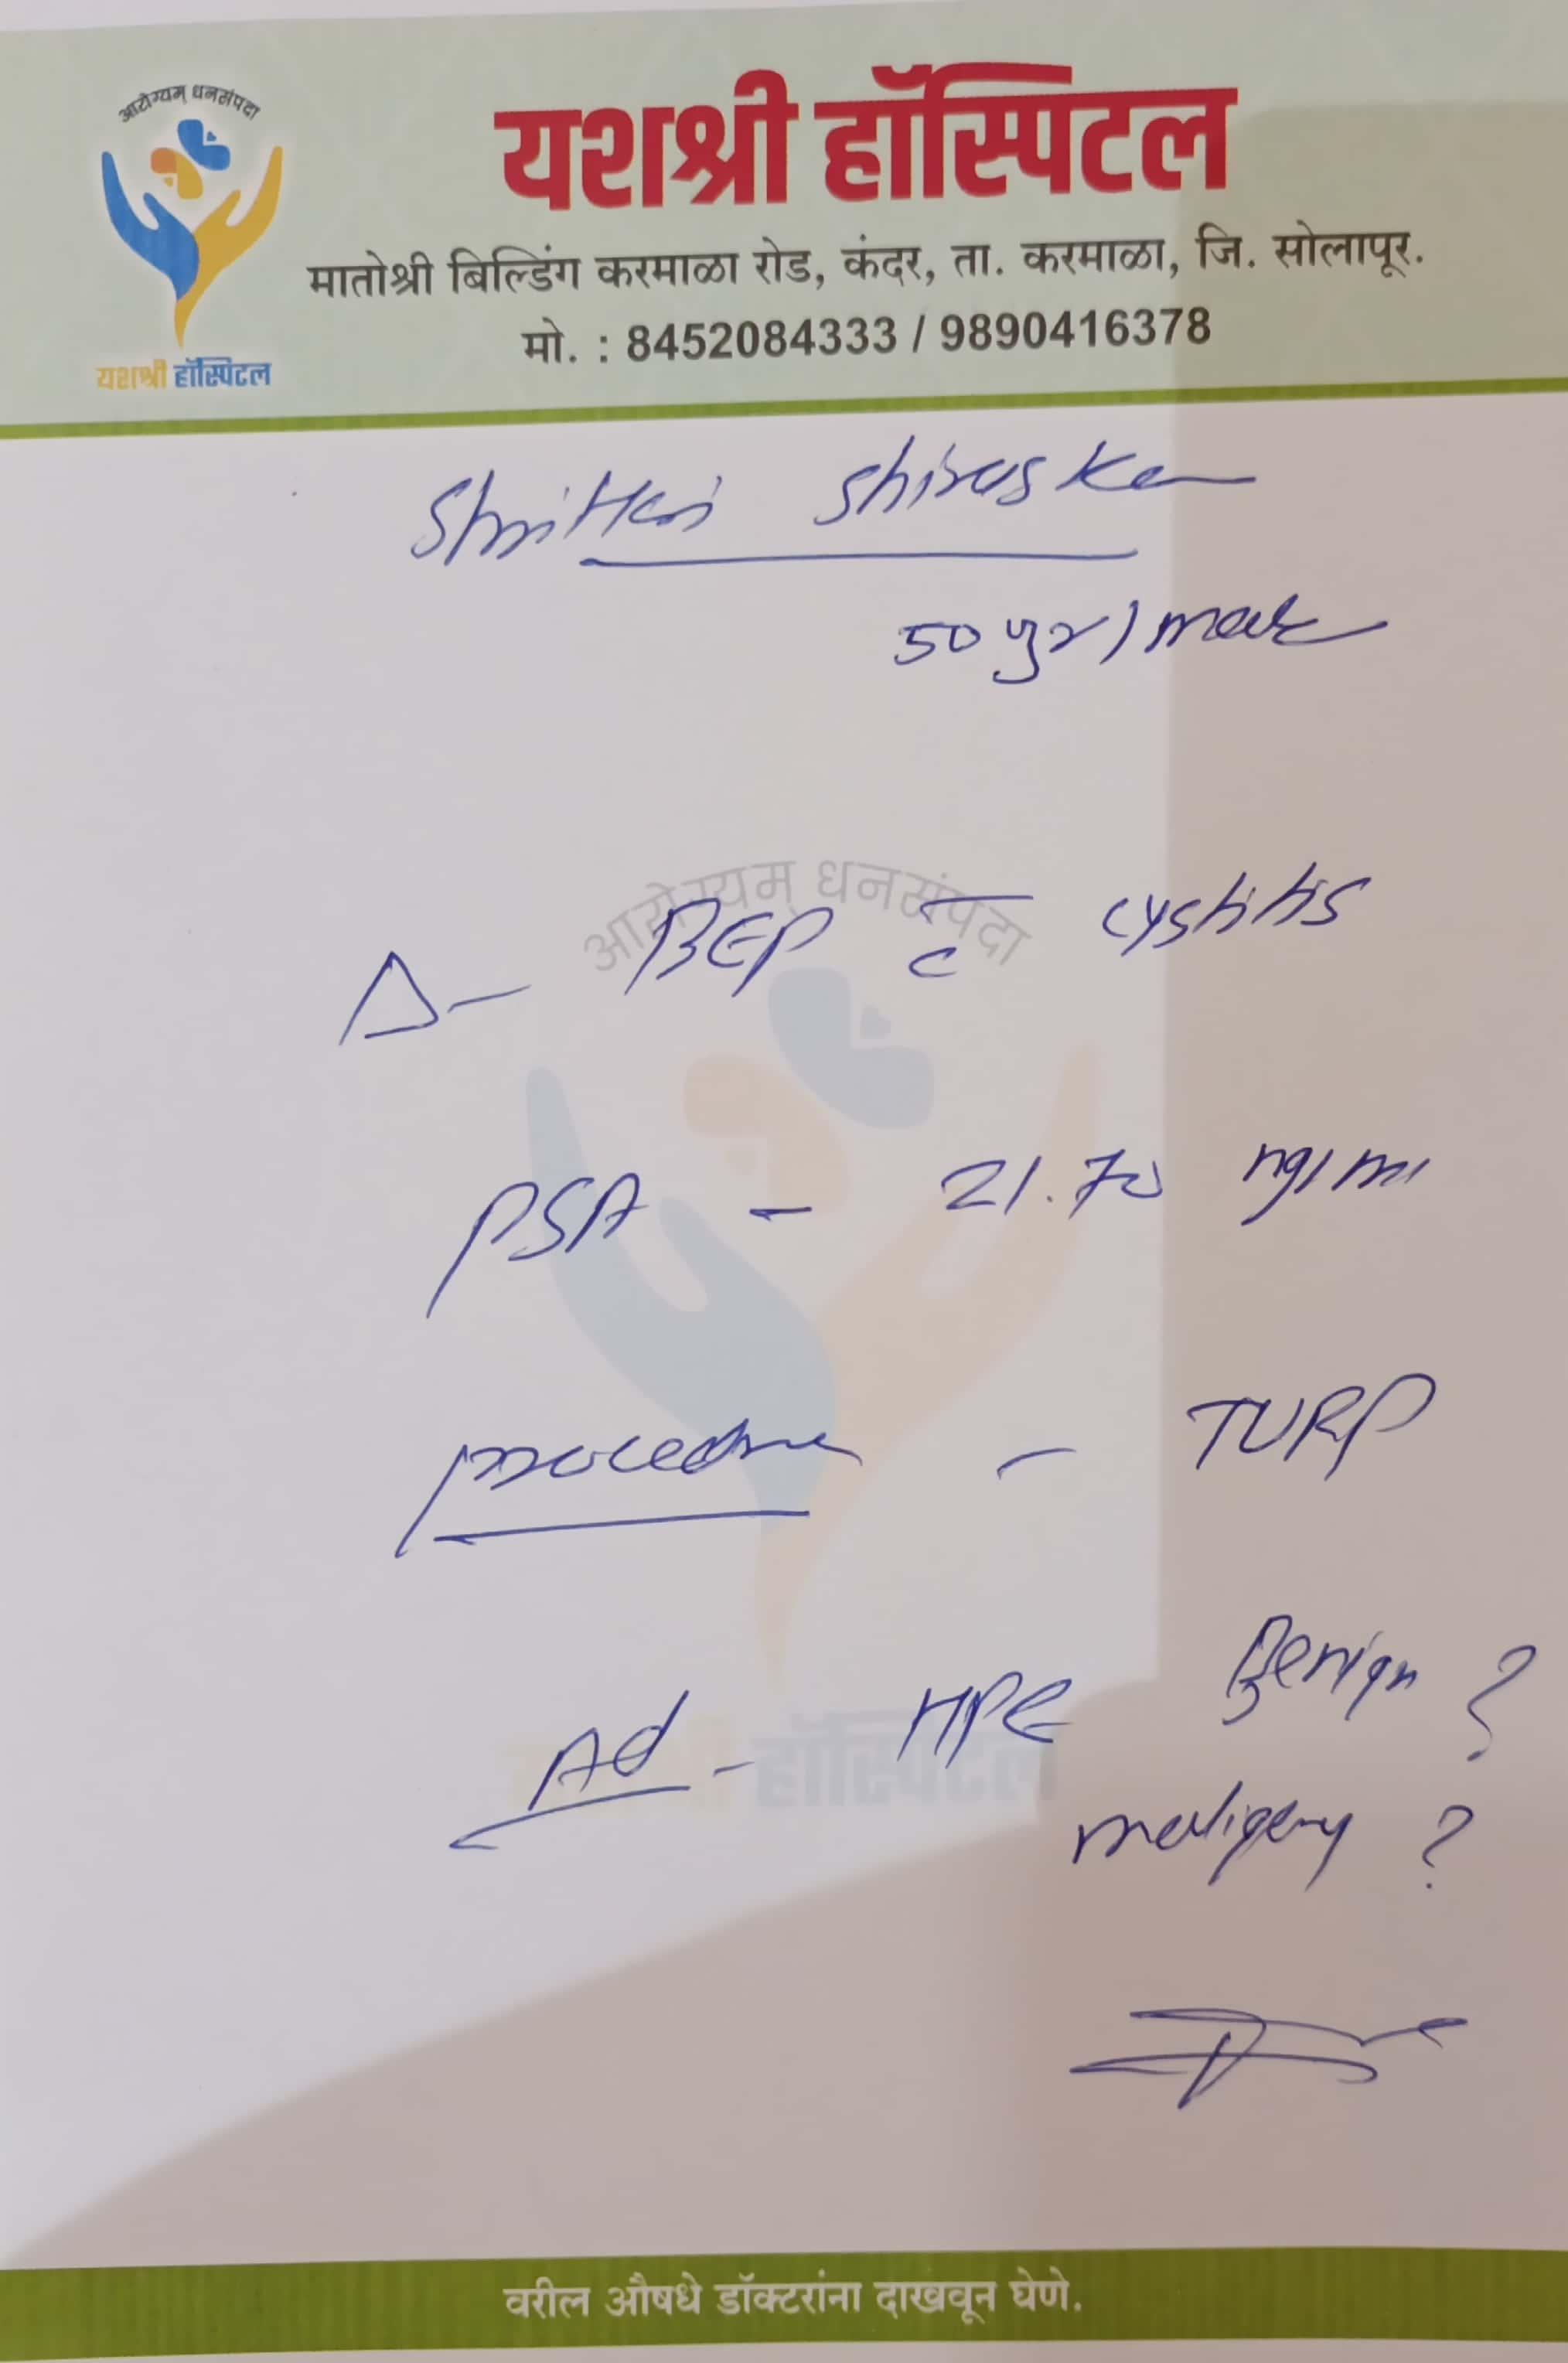 आरोग्यम् धनसंपदा
यशश्री हॉस्पिटल
मातोश्री बिल्डिंग करमाळा रोड, कंदर, ता. करमाळा, जि. सोलापूर.
मो. : 8452084333 / 9890416378
यशश्री हॉस्पिटल
ShriHari Shiraskar
50 yr / male
आरोग्यम् धनसंपदा
Δ - BEP c̄ cystitis
PSA - 21.70 ng/ml
procedure - TURP
Ad - HPE Benign ?
हॉस्पिटल
malignancy ?
वरील औषधे डॉक्टरांना दाखवून घेणे.